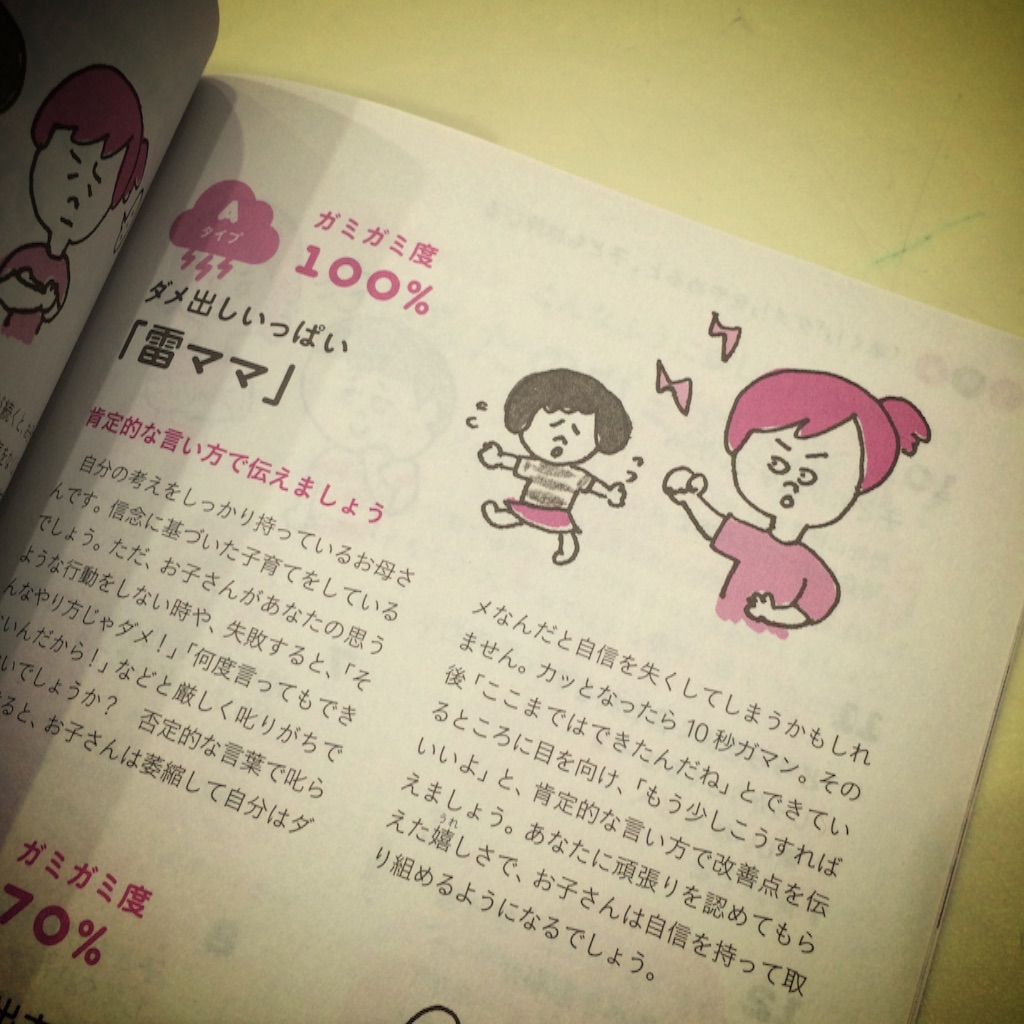 A
タイプ
ガミガミ度
100%
ダメ出しいっぱい
「雷ママ」
肯定的な言い方で伝えましょう
自分の考えをしっかり持っているお母さ
んです。信念に基づいた子育てをしている
でしょう。ただ、お子さんがあなたの思う
ような行動をしない時や、失敗すると、「そ
んなやり方じゃダメ!」「何度言ってもでき
ないんだから!」などと厳しく叱りがちで
いでしょうか? 否定的な言葉で叱ら
ると、お子さんは萎縮して自分はダ
メなんだと自信を失くしてしまうかもしれ
ません。カッとなったら10秒ガマン。その
後「ここまではできたんだね」とできてい
るところに目を向け、「もう少しこうすれば
いいよ」と、肯定的な言い方で改善点を伝
えましょう。あなたに頑張りを認めてもら
えた嬉しさで、お子さんは自信を持って取
うれ
り組めるようになるでしょう。
ガミガミ度
70%